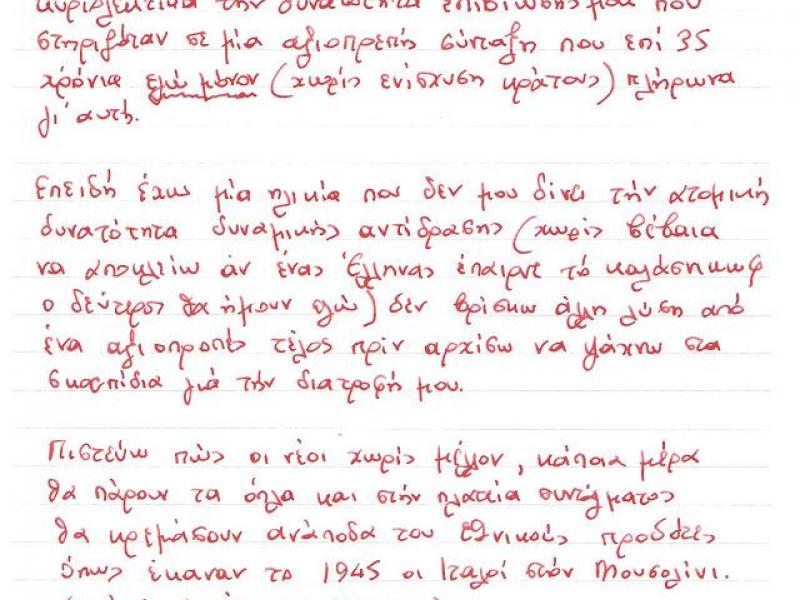 κυριολεκτικά την δυνατότητα επιβίωσής μου που
στηριζόταν σε μία αξιοπρεπή σύνταξη που επί 35
χρόνια εγώ μόνον (χωρίς ενίσχυση κράτους) πλήρωνα
γι' αυτή.
Επειδή έχω μία ηλικία που δεν μου δίνει τήν ατομική
δυνατότητα δυναμικής αντίδρασης (χωρίς βέβαια
να αποκλείω άν ένας Έλληνας έπαιρνε τό καλάσηκωφ
ο δεύτερος θα ήμουν εγώ) δέν βρίσκω άλλη λύση από
ένα αξιοπρεπές τέλος πρίν αρχίσω να ψάχνω στα
σκουπίδια γιά τήν διατροφή μου.
Πιστεύω πώς οι νέοι χωρίς μέλλον, κάποια μέρα
θα πάρουν τα όπλα και στήν πλατεία συντάγματος
θα κρεμάσουν ανάποδα του εθνικούς προδότες
όπως έκαναν το 1945 οι Ιταλοί στόν Μουσολίνι.